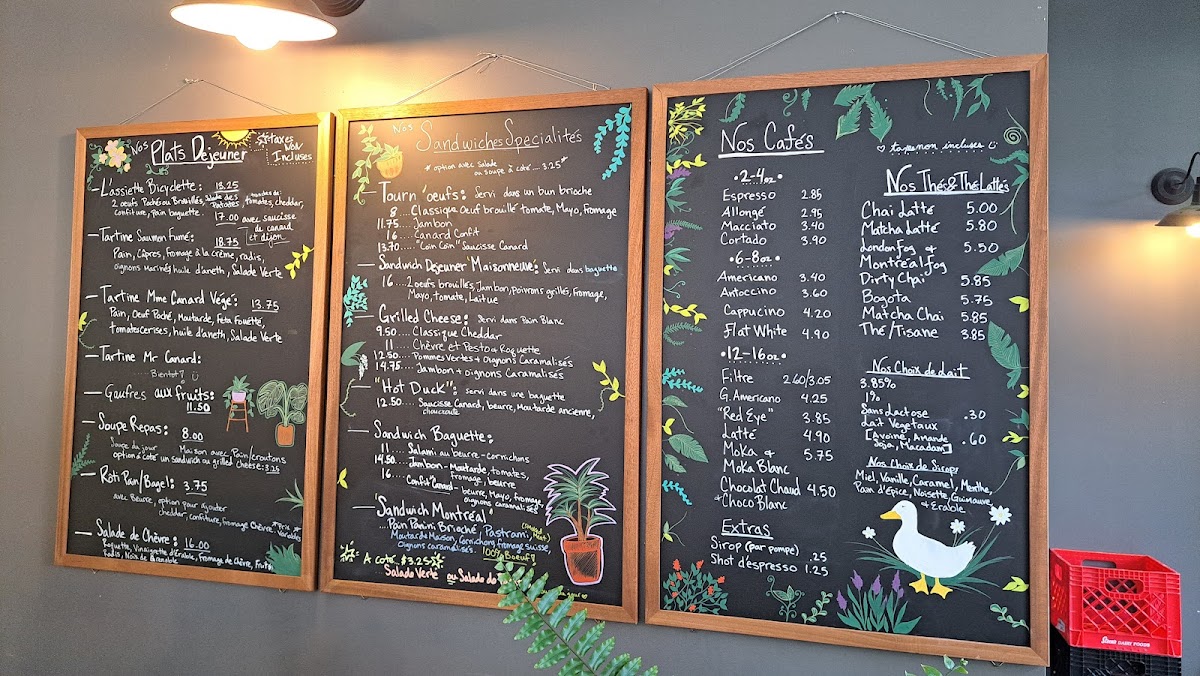 Nos Plats Déjeuner
*taxes
Non
Incluses
— L'assiette Bicyclette: 13.25
2 oeufs Poché ou Brouillés, Salade des Patates, tranches de: tomates, cheddar,
Confiture, Pain baguette.
17.00 avec saucisse
de canard
et dijon
— Tartine Saumon Fumé: 18.75
Pain, Câpres, Fromage à la crème, radis,
oignons marinés, huile d'aneth, Salade Verte
— Tartine Mme Canard Végé: 13.75
Pain, Oeuf Poché, Moutarde, Feta Fouetté,
tomates cerises, huile d'aneth, Salade Verte
— Tartine Mr Canard:
Bientôt!
— Gaufres aux fruits:
11.50
— Soupe Repas: 8.00
Soupe du jour Maison avec Pain/croutons
option à côté un sandwich ou grilled cheese: 3.25
— Rôti Pan/Bagel: 3.75
avec Beurre, option pour ajouter
cheddar, confiture, fromage Chèvre. *Prix Variables
— Salade de Chèvre: 16.00
Roquette, Vinaigrette d'Érable, Fromage de Chèvre, Fruits
Radis, Noix de Grenoble
Nos Sandwiches Specialités
*option avec salade
ou soupe à côté ... 3.25*
— Tourn'oeufs: Servi dans un bun brioche
8 .... Classique Oeuf brouillé tomate, Mayo, Fromage
11.75 .... Jambon
16 .... Canard Confit
13.70 .... "Coin Coin" Saucisse Canard
— Sandwich Déjeuner 'Maisonneuve': Servi dans baguette
16 .... 2 oeufs brouillés, Jambon, poivrons grillés, Fromage,
Mayo, tomate, Laitue
— Grilled Cheese: Servi dans Pain Blanc
9.50 .... Classique Cheddar
11 .... Chèvre et Pesto & Roquette
12.50 .... Pommes Vertes + Oignons Caramalisés
14.75 .... Jambon + oignons Caramalisés
— "Hot Duck": servi dans une baguette
12.50 .... Saucisse Canard, beurre, Moutarde ancienne,
choucroute
— Sandwich Baguette:
11 .... Salami au beurre - cornichons
14.50 .... Jambon - Moutarde, tomates,
fromage, beurre
16 .... Confit Canard - beurre, Mayo, fromage
oignons caramalisés
— 'Sandwich Montréal'
Pain Panini Brioché, Pastrami, (smoked Meat)
Moutarde Maison, Cornichons, fromage suisse,
Oignons caramalisés. 100% Boeuf
A coté $3.25
Salade Verte ou Salade de
Nos Cafés
♡ taxes non incluses
•2-4oz•
Espresso 2.85
Allongé 2.95
Macciato 3.40
Cortado 3.90
•6-8oz•
Americano 3.40
Antoccino 3.60
Cappucino 4.20
Flat White 4.90
•12-16oz•
Filtre 2.60/3.05
G. Americano 4.25
"Red Eye" 3.85
Latté 4.90
Moka & 5.75
Moka Blanc
Chocolat Chaud 4.50
& Choco Blanc
Extras
Sirop (par pompe) .25
Shot d'espresso 1.25
Nos Thés & Thé Lattés
Chai Latté 5.00
Matcha Latté 5.80
London Fog & 5.50
Montréal Fog
Dirty Chai 5.85
Bogota 5.75
Matcha Chai 5.85
Thé/Tisane 3.85
Nos Choix de lait
3.85%
1%
Sans Lactose .30
Lait Vegetaux .60
[Avoine, Amande
Soja, Macadam]
Nos Choix de Sirops
Miel, Vanille, Caramel, Menthe,
Pain d'épice, Noisette, Guimauve
& Erable
DAIRY FOODS